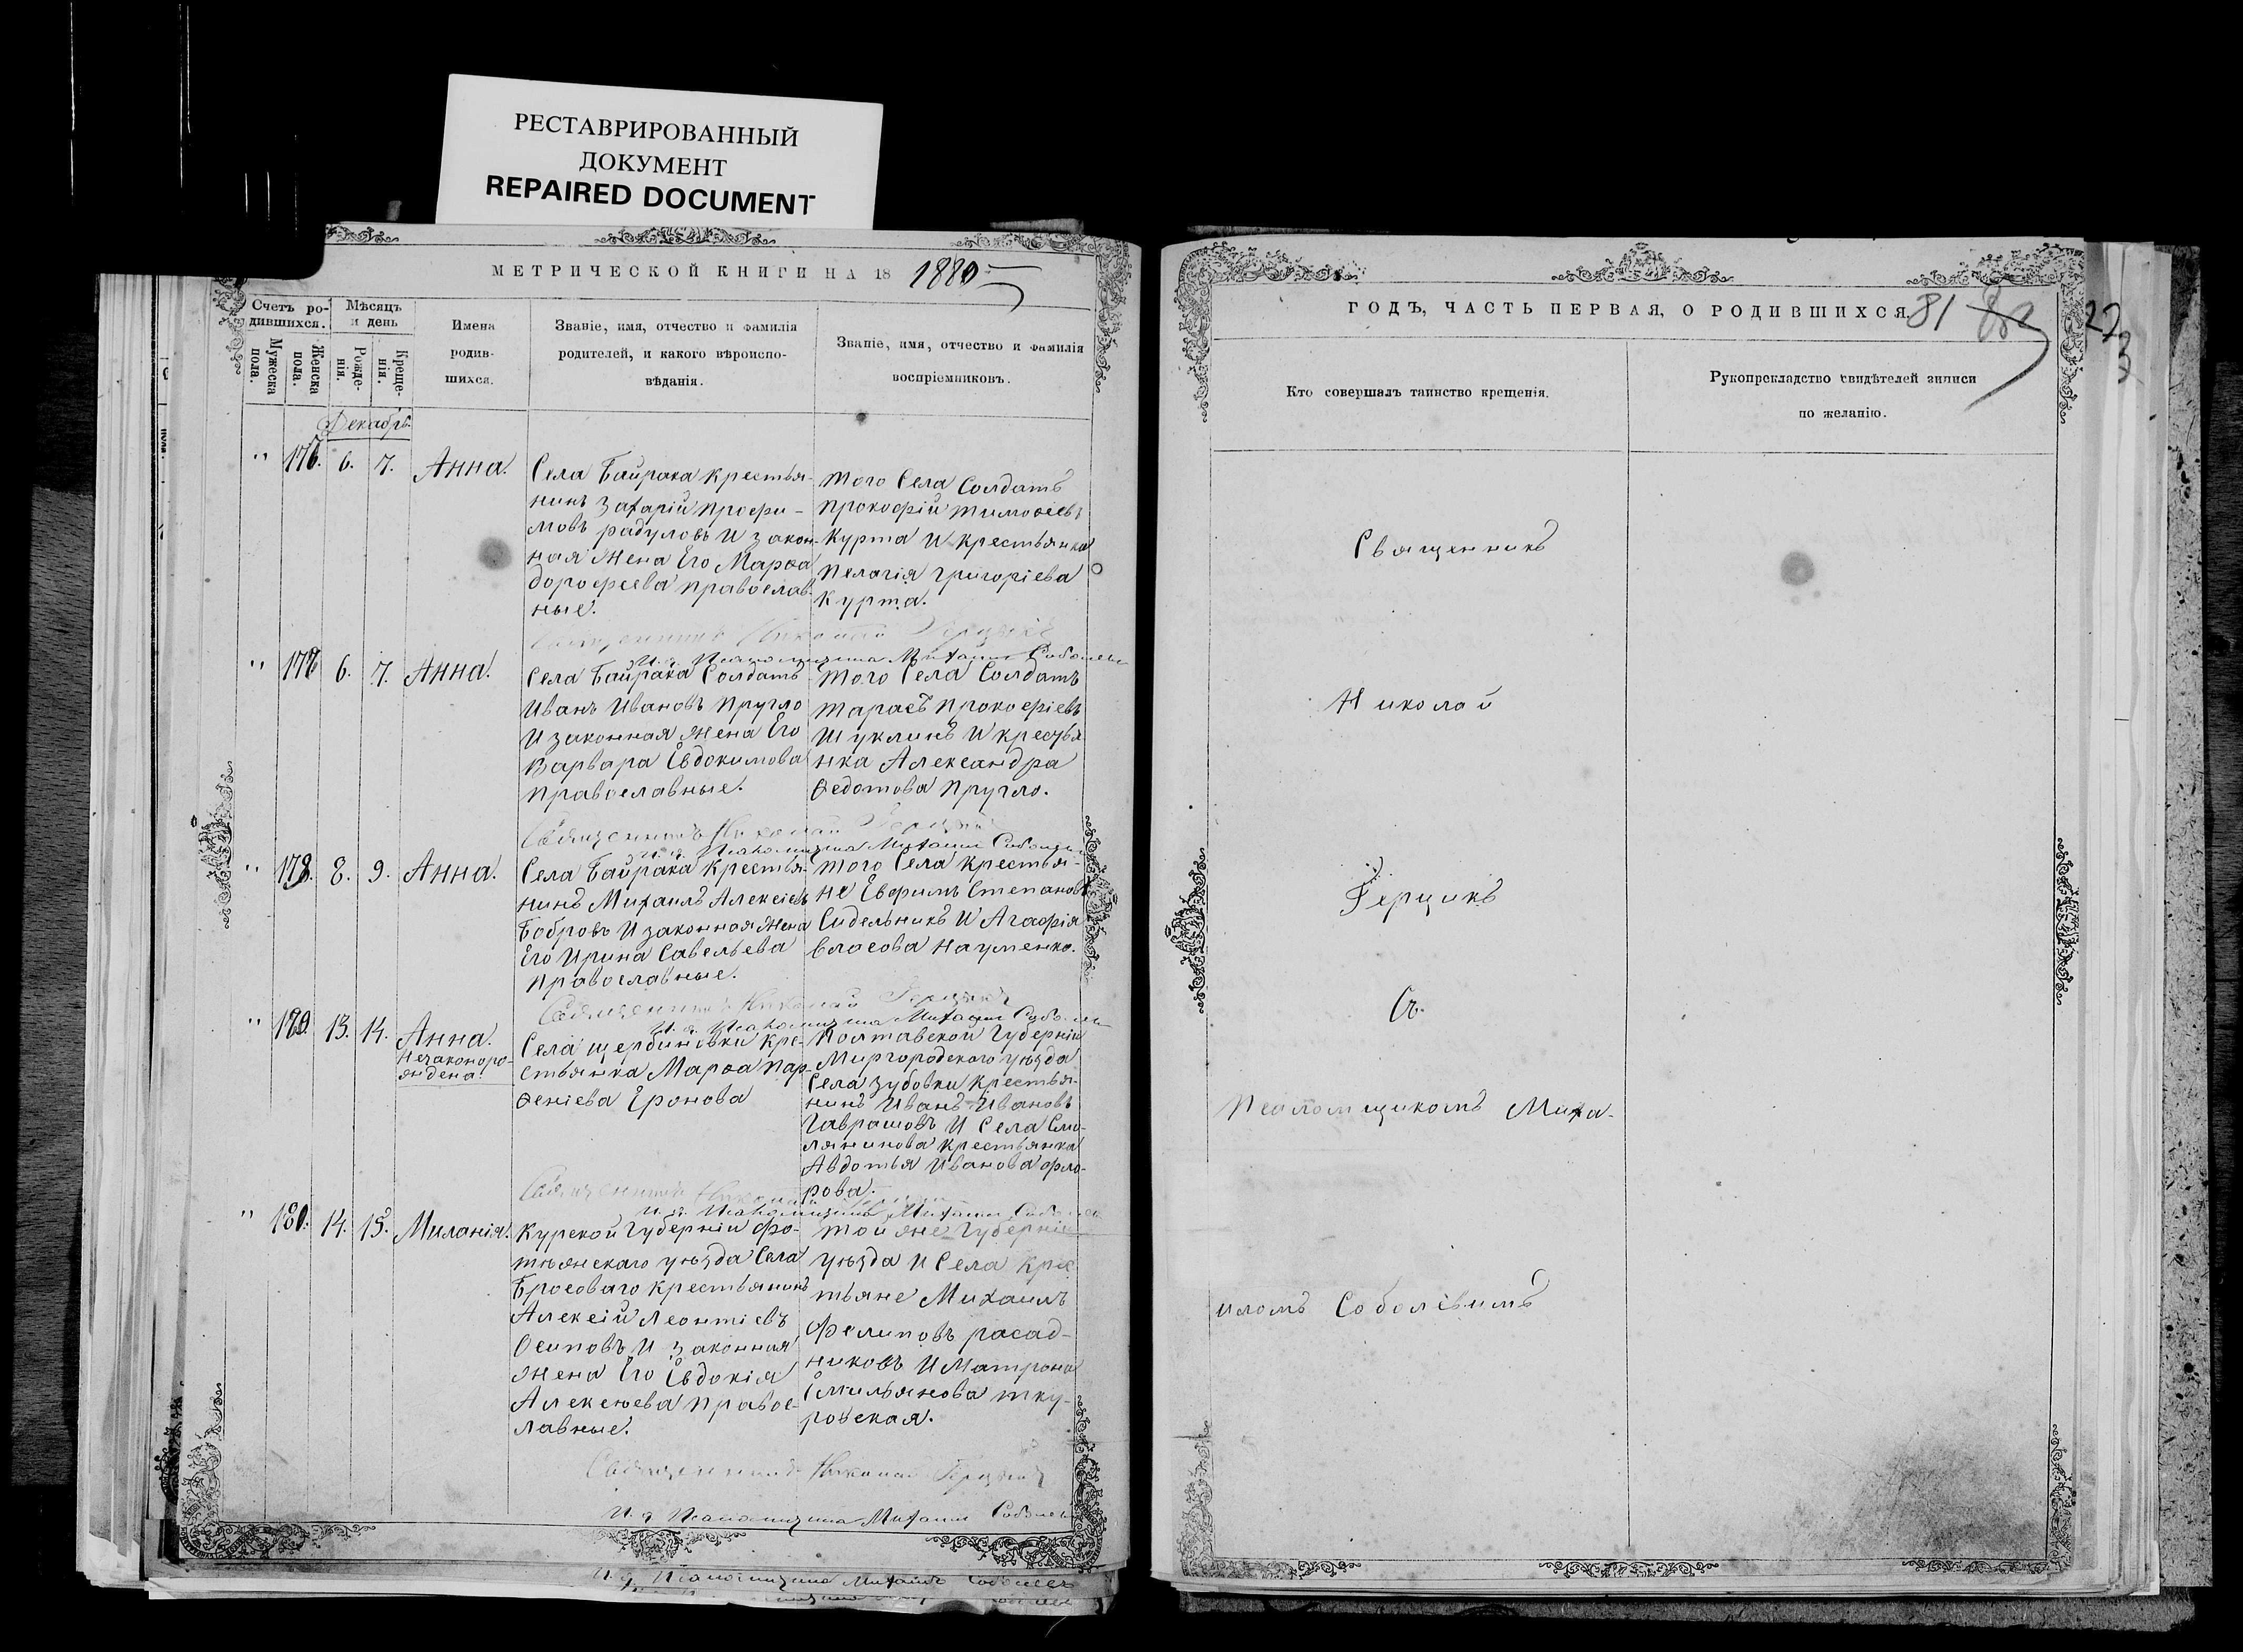 РЕСТАВРИРОВАННЫЙ
ДОКУМЕНТ
REPAIRED DOCUMENT
МЕТРИЧЕСКОЙ КНИГИ НА 18 1880
Счетъ ро-
дившихся.
Мужеска
пола.
Женска
пола.
Мѣсяцъ
и день
Рожде-
нія.
Креще-
нія.
Имена
родив-
шихся.
Званіе, имя, отчество и фамилія
родителей, и какого вѣроиспо-
вѣданія.
Званіе, имя, отчество и фамилія
воспріемниковъ.
Декабрь
" 176. 6. 7. Анна.
Села Байрака Крестья-
нинъ Захарій Профи-
мовъ радуловъ И закон-
ная Жена Его Марѳа
дорофеева православ-
ные.
того Села Солдатъ
Прокофій тимоѳіевъ
Курта И Крестьянка
Пелагія григоріева
Курта.
Священникъ Николай Герцикъ
И. д. Псаломщика Михаилъ Соболевъ
" 177 6. 7. Анна.
Села Байрака Солдатъ
Иванъ Ивановъ Пругло
И законная Жена Его
Варвара Евдокимова
православные.
того Села Солдатъ
тарасъ Прокофіевъ
Шуклинъ И крестья
нка Александра
Ѳедотова Пругло.
Священникъ Николай Герцикъ
И. д. Псаломщика Михаилъ Соболевъ
" 178. 8. 9. Анна.
Села Байрака Крестья-
нинъ Михаилъ Алексіевъ
Бобровъ И законная Жена
Его Ирина Савельева
православные.
того Села крестья-
не Евфимъ Степановъ
Сидельникъ И Агафія
Власова Науменко.
Священникъ Николай Герцикъ
И. д. Псаломщика Михаилъ Соболевъ
" 13. 14. Анна.
Незаконоро-
ждена.
Села щербиновки Кре-
стьянка Марѳа Пар-
ѳеніева Еронова
Полтавской Губерніи
Миргородского уѣзда
Села Зубовки Крестья-
нинъ Иванъ Ивановъ
Гаврашовъ И Села Смо-
лянинова Крестьянка
Авдотья Иванова фло-
рова.
Священникъ Николай Герцикъ
И. д. Псаломщика Михаилъ Соболевъ
" 180. 14. 15. Миланія.
Курской Губерніи Фо-
тѣжскаго уѣзда Села
Бросоваго крестьянинъ
Алексій Леонтіевъ
Осиповъ И законная
Жена Его Евдокія
Алексѣева Правос-
лавные.
той же Губерніи
уѣзда И Села Крес
тьяне Михаилъ
Филиповъ расад-
никовъ И Матрона
Емильянова тку-
ровская.
Священникъ Николай Герцикъ
И. д. Псаломщика Михаилъ Соболевъ
И. д. Псаломщика Михаилъ Соболевъ
ГОДЪ, ЧАСТЬ ПЕРВАЯ, О РОДИВШИХСЯ
81
Кто совершалъ таинство крещенія.
Рукоприкладство свидѣтелей записи
по желанію.
Священникъ
Николай
Герцикъ
Съ
Псаломщикомъ Миха-
иломъ Соболевимъ